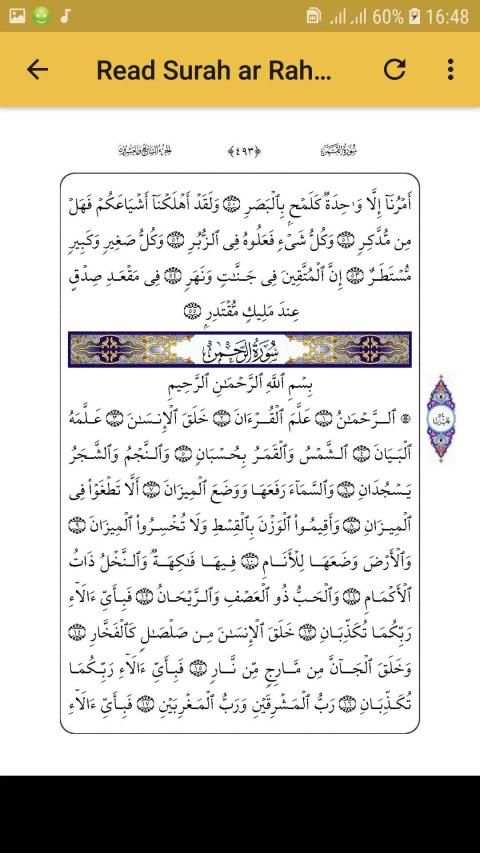 60% 16:48
Read Surah ar Rah...
سُورَةُ القَمَر ﴿٤٩٣﴾ الجُزءُ السَّابِعُ وَالعِشرُون
أَمْرُنَآ إِلَّا وَٰحِدَةٌ كَلَمْحِۭ بِٱلْبَصَرِ ۝٥٠ وَلَقَدْ أَهْلَكْنَآ أَشْيَاعَكُمْ فَهَلْ
مِن مُّدَّكِرٍ ۝٥١ وَكُلُّ شَىْءٍ فَعَلُوهُ فِى ٱلزُّبُرِ ۝٥٢ وَكُلُّ صَغِيرٍ وَكَبِيرٍ
مُّسْتَطَرٌ ۝٥٣ إِنَّ ٱلْمُتَّقِينَ فِى جَنَّٰتٍ وَنَهَرٍ ۝٥٤ فِى مَقْعَدِ صِدْقٍ
عِندَ مَلِيكٍ مُّقْتَدِرٍۭ ۝٥٥
سُورَةُ الرَّحْمَٰن
بِسْمِ ٱللَّهِ ٱلرَّحْمَٰنِ ٱلرَّحِيمِ
۞ ٱلرَّحْمَٰنُ ۝١ عَلَّمَ ٱلْقُرْءَانَ ۝٢ خَلَقَ ٱلْإِنسَٰنَ ۝٣ عَلَّمَهُ
ٱلْبَيَانَ ۝٤ ٱلشَّمْسُ وَٱلْقَمَرُ بِحُسْبَانٍ ۝٥ وَٱلنَّجْمُ وَٱلشَّجَرُ
يَسْجُدَانِ ۝٦ وَٱلسَّمَآءَ رَفَعَهَا وَوَضَعَ ٱلْمِيزَانَ ۝٧ أَلَّا تَطْغَوْا۟ فِى
ٱلْمِيزَانِ ۝٨ وَأَقِيمُوا۟ ٱلْوَزْنَ بِٱلْقِسْطِ وَلَا تُخْسِرُوا۟ ٱلْمِيزَانَ ۝٩
وَٱلْأَرْضَ وَضَعَهَا لِلْأَنَامِ ۝١٠ فِيهَا فَٰكِهَةٌ وَٱلنَّخْلُ ذَاتُ
ٱلْأَكْمَامِ ۝١١ وَٱلْحَبُّ ذُو ٱلْعَصْفِ وَٱلرَّيْحَانُ ۝١٢ فَبِأَىِّ ءَالَآءِ
رَبِّكُمَا تُكَذِّبَانِ ۝١٣ خَلَقَ ٱلْإِنسَٰنَ مِن صَلْصَٰلٍ كَٱلْفَخَّارِ ۝١٤
وَخَلَقَ ٱلْجَآنَّ مِن مَّارِجٍ مِّن نَّارٍ ۝١٥ فَبِأَىِّ ءَالَآءِ رَبِّكُمَا
تُكَذِّبَانِ ۝١٦ رَبُّ ٱلْمَشْرِقَيْنِ وَرَبُّ ٱلْمَغْرِبَيْنِ ۝١٧ فَبِأَىِّ ءَالَآءِ